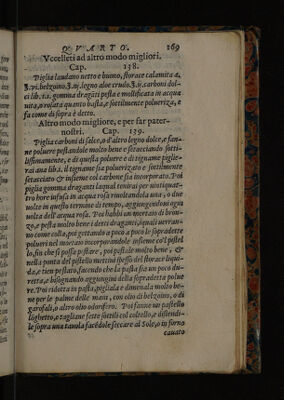 QVARTO. 169
Vccelleti ad altro modo migliori.
Cap. 138.
Piglia laudano netto e buono, storace calamita 4.
belzoino legno aloe crudo carboni dol-
ci lib. gomma draganti pesta e mollificata in acqua
vita, o rosata quanto basta, e sottilmente polueriza, e
fa come di sopra è detto.
Altro modo migliore, e per far pater-
nostri. Cap. 139.
Piglia carboni di salce, o d'altro legno dolce, e fan-
ne poluere pestandole molto bene e setacciando sotti-
lissimamente, e di questa poluere e di tigname piglie-
rai ana lib. il tigname sia poluerizato e sottilmente
setacciato & insieme col carbone sia incorporato. Poi
piglia gomma draganti laqual tenirai per vintiquat-
tro hore infusa in acqua rosa mutandola una, o due
uolte in questo termine di tempo, aggiungendoui ogni
uolta dell'acqua rosa. Poi habbi un mortaio di bron-
zo, e pesta molto bene i detti draganti, iquali uerran-
no come colla, poi gettando a poco a poco le sopradette
polueri nel mortaio incorporandole insieme col pistel
lo, fin che si possa pestare, poi pestale molto bene, &
nella punta del pistello mettiui spesso del storace liqui-
da, e tien pestato, facendo che la pasta sia un poco du-
retta, e bisognando aggiungiui della sopradetta polue
re. Poi ridotta in pasta, pigliala e dimenala molto be-
ne per le palme delle mani, con olio di belzoino, o di
garofali, o altro olio odorifero. Poi fanne un pastello
lighetto, e tagliane fette sottili col coltello, e distendi-
le sopra una tauola facēdole seccare al Sole, o in forno
cauato